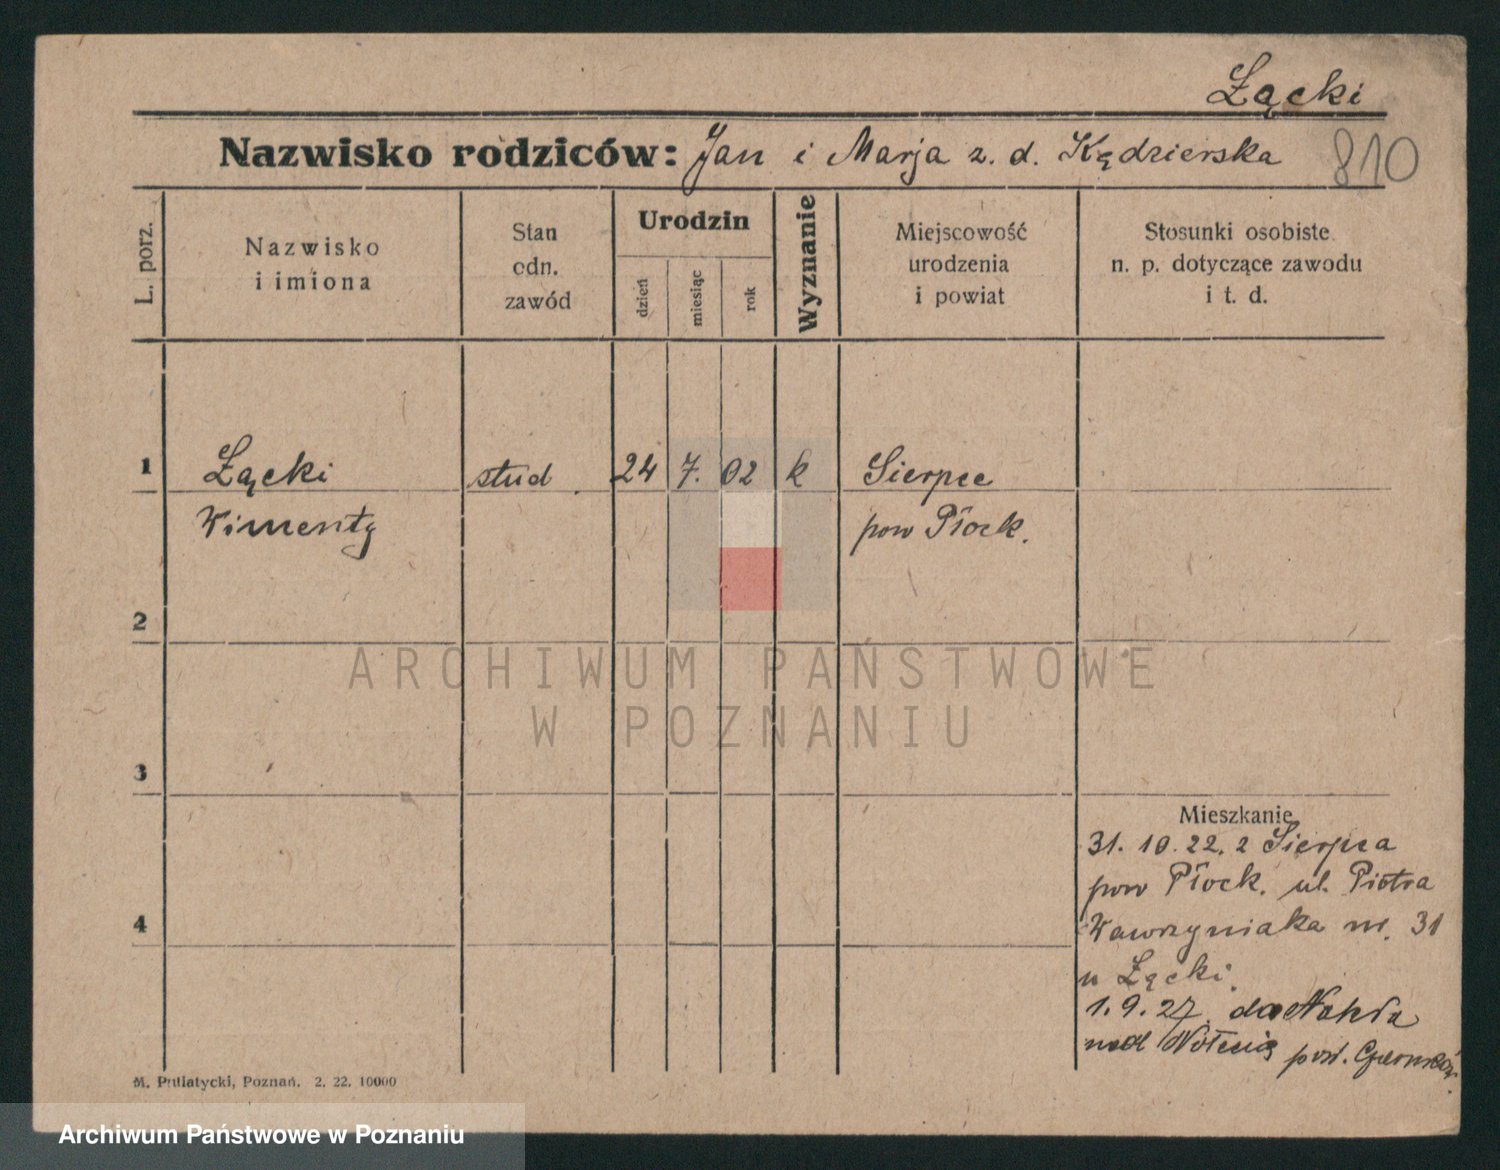 Łącki
Nazwisko rodziców: Jan i Marja z. d. Kędzierska 810
L. porz.
Nazwisko
i imiona
Stan
cdn.
zawód
Urodzin
dzień
miesiąc
rok
Wyznanie
Miejscowość
urodzenia
i powiat
Stosunki osobiste
n. p. dotyczące zawodu
i t. d.
1 Łącki stud 24 7. 02 k Sierpce
pow Płock.
2
ARCHIWUM PAŃSTWOWE
W POZNANIU
3
Mieszkanie
31. 10. 22. z Sierpca
pow Płock. ul. Piotra
Wawrzyniaka nr. 31
u Łącki.
4
1. 9. 27. do Nakła
nad Notecią pow.
M. Putiatycki, Poznań. 2. 22. 10000
Archiwum Państwowe w Poznaniu